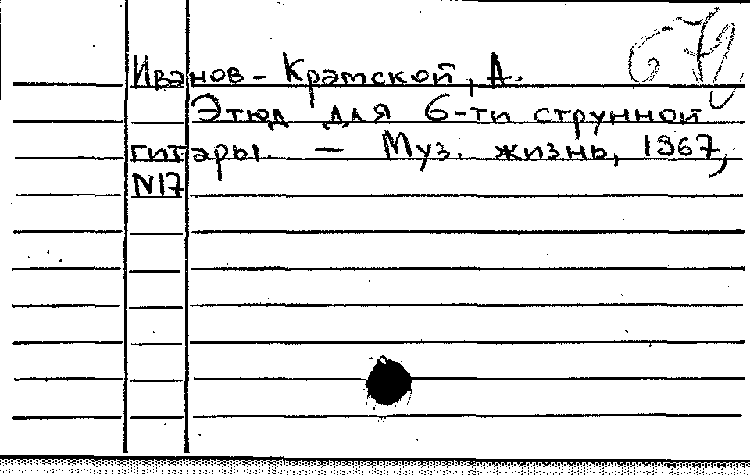 Иванов-Крамской, А.
Этюд для 6-ти струнной
гитары. — Муз. жизнь, 1967,
N17